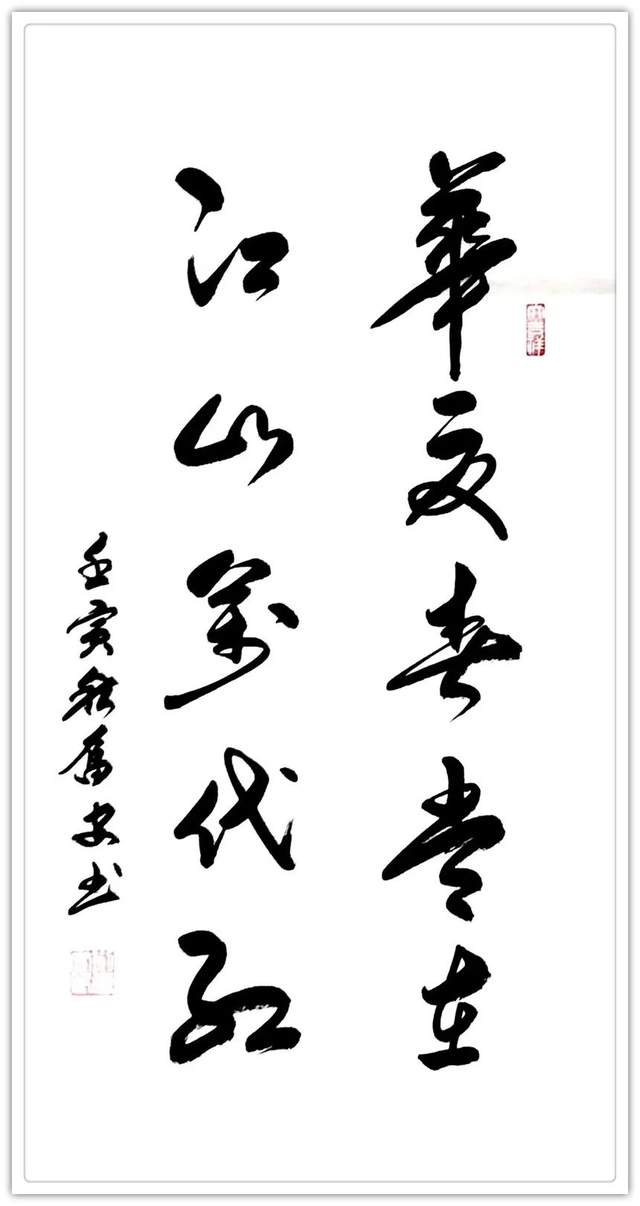 華夏春常在
江山萬代紅
壬寅秋奮安书